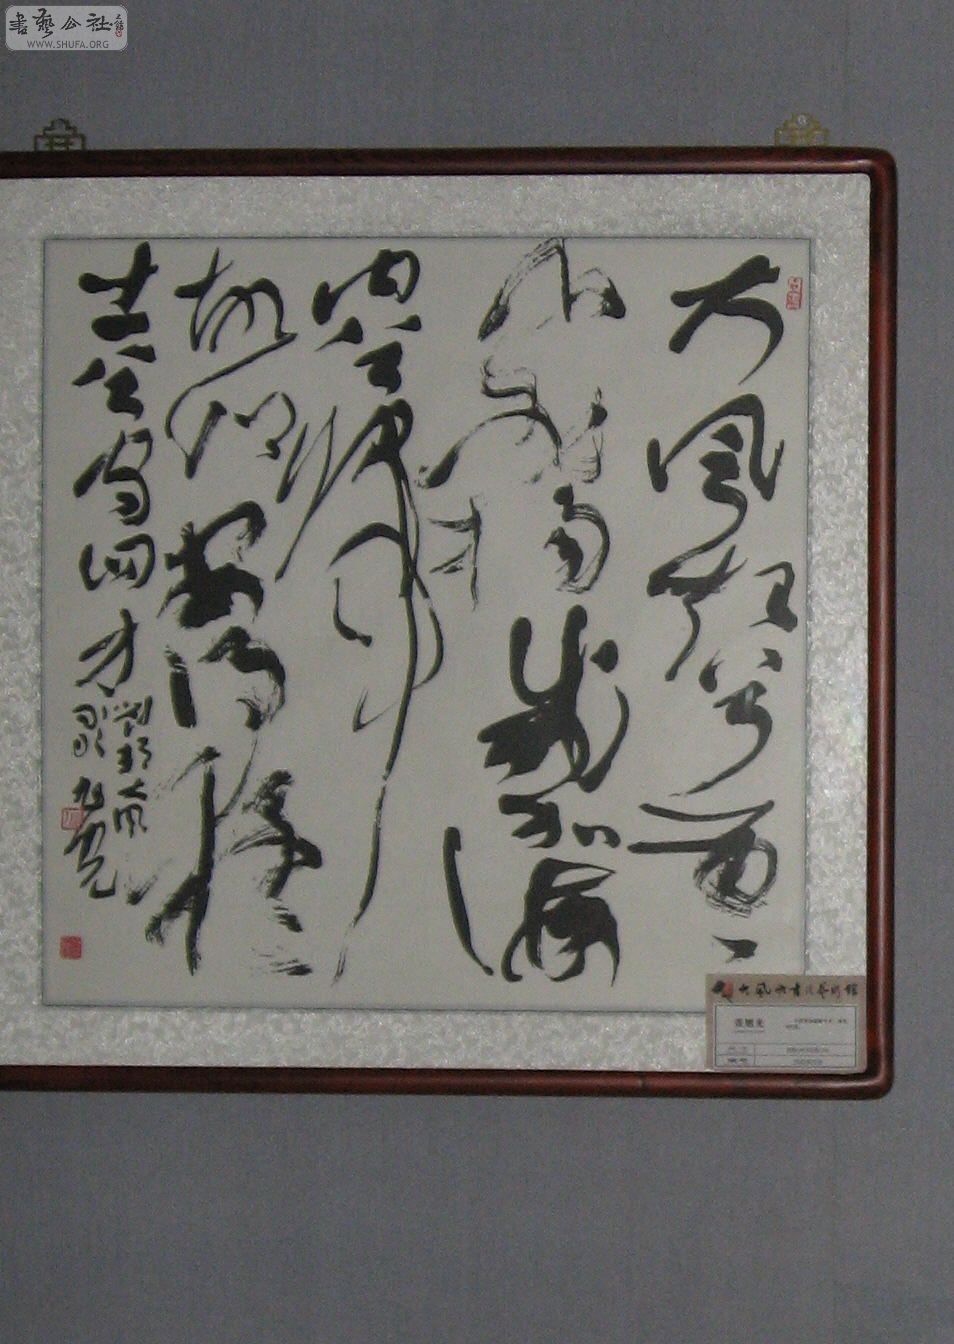 書藝公社
WWW.SHUFA.ORG
大風起兮雲
飛揚威加海
内兮歸
故鄉安得猛
士兮守四方
劉邦大風
歌旭光
大风歌书法艺术馆
张旭光